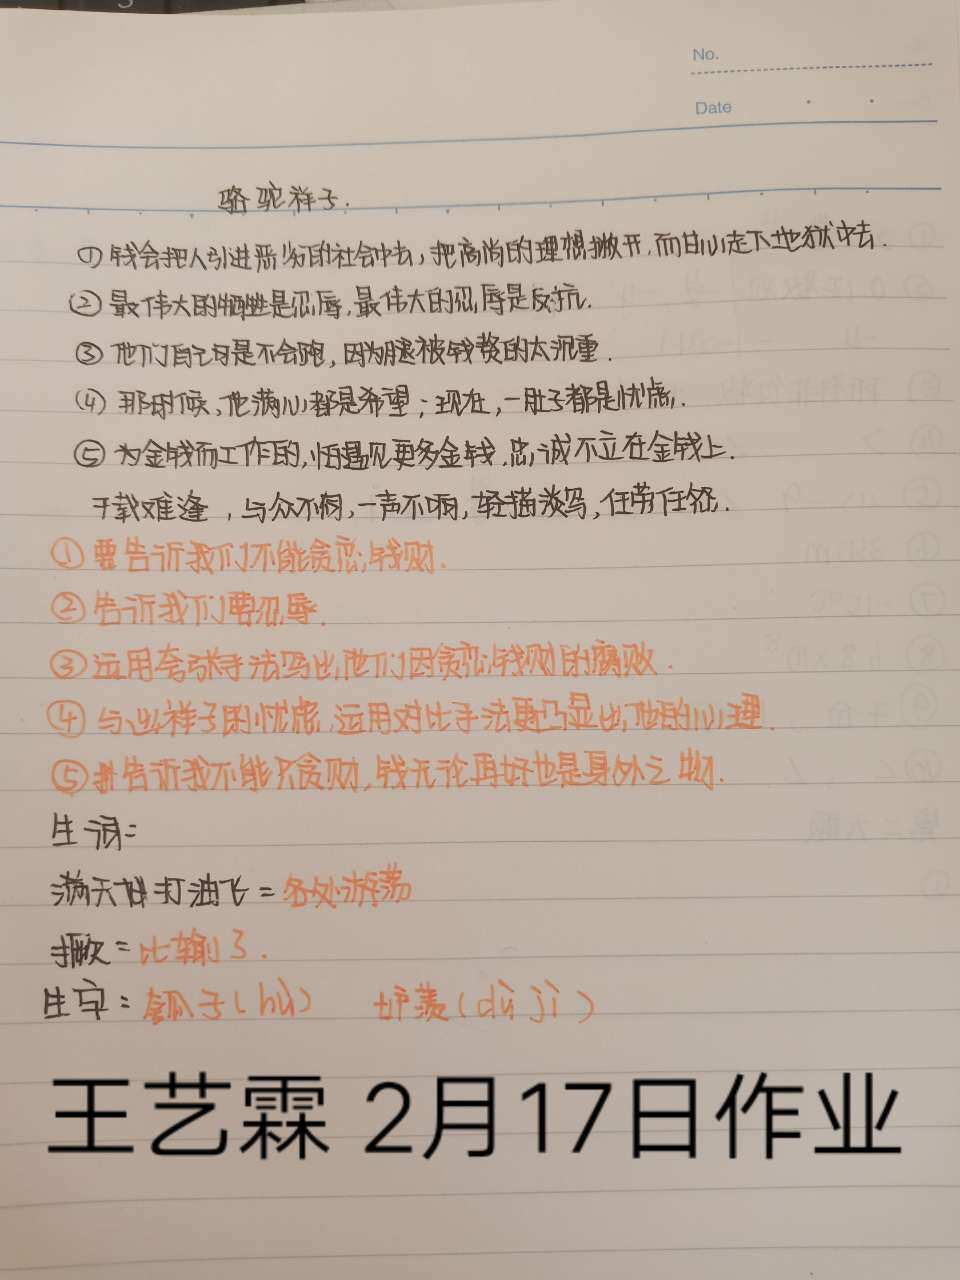 No.
Date
骆驼祥子.
①钱会把人引进恶劣的社会中去,把高尚的理想撇开,而甘心走下地狱中去.
②最伟大的牺牲是忍辱,最伟大的忍辱是反抗.
③他们自己可是不会跑,因为腿被钱赘的太沉重.
④那时候,他满心都是希望;现在,一肚子都是忧虑.
⑤为金钱而工作的,怕遇见更多金钱.忠诚不立在金钱上.
千载难逢,与众不同,一声不响,轻描淡写,任劳任怨.
①要告诉我们不能贪恋钱财.
②告诉我们要忍辱.
③运用夸张手法写出他们因贪恋钱财的腐败.
④写出祥子的忧虑,运用对比手法更凸显出他的心理.
⑤告诉我不能只贪财,钱无论再好也是身外之物.
生词:
满天打油飞=各处游荡
撅=比输了.
生字=瓠子(hù) 妒羡(dù jì)
王艺霖 2月17日作业